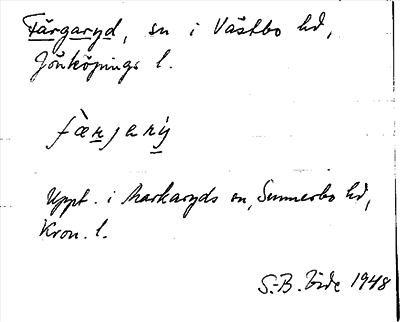 Färgaryd, sn i Västbo hd,
Jönköpings l.
fær̲jarẏ
Uppt. i Markaryds sn, Sunnerbo hd,
Kron. l.
S.-B. 1948